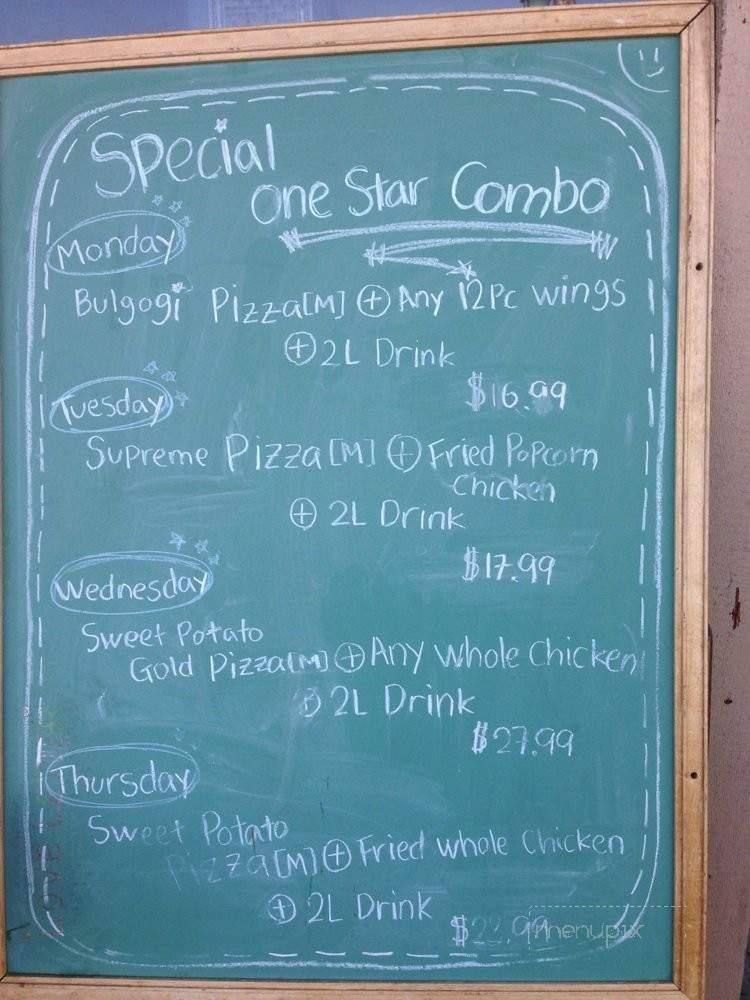 Special
one Star Combo
Monday
Bulgogi Pizza[M] + Any 12Pc wings
+ 2L Drink
$16.99
Tuesday
Supreme Pizza [M] + Fried Popcorn
Chicken
+ 2L Drink
$17.99
Wednesday
Sweet Potato
Gold Pizza[M] + Any whole chicken
2L Drink
$27.99
Thursday
Sweet Potato
Pizza[M] + Fried whole Chicken
+ 2L Drink
menupix